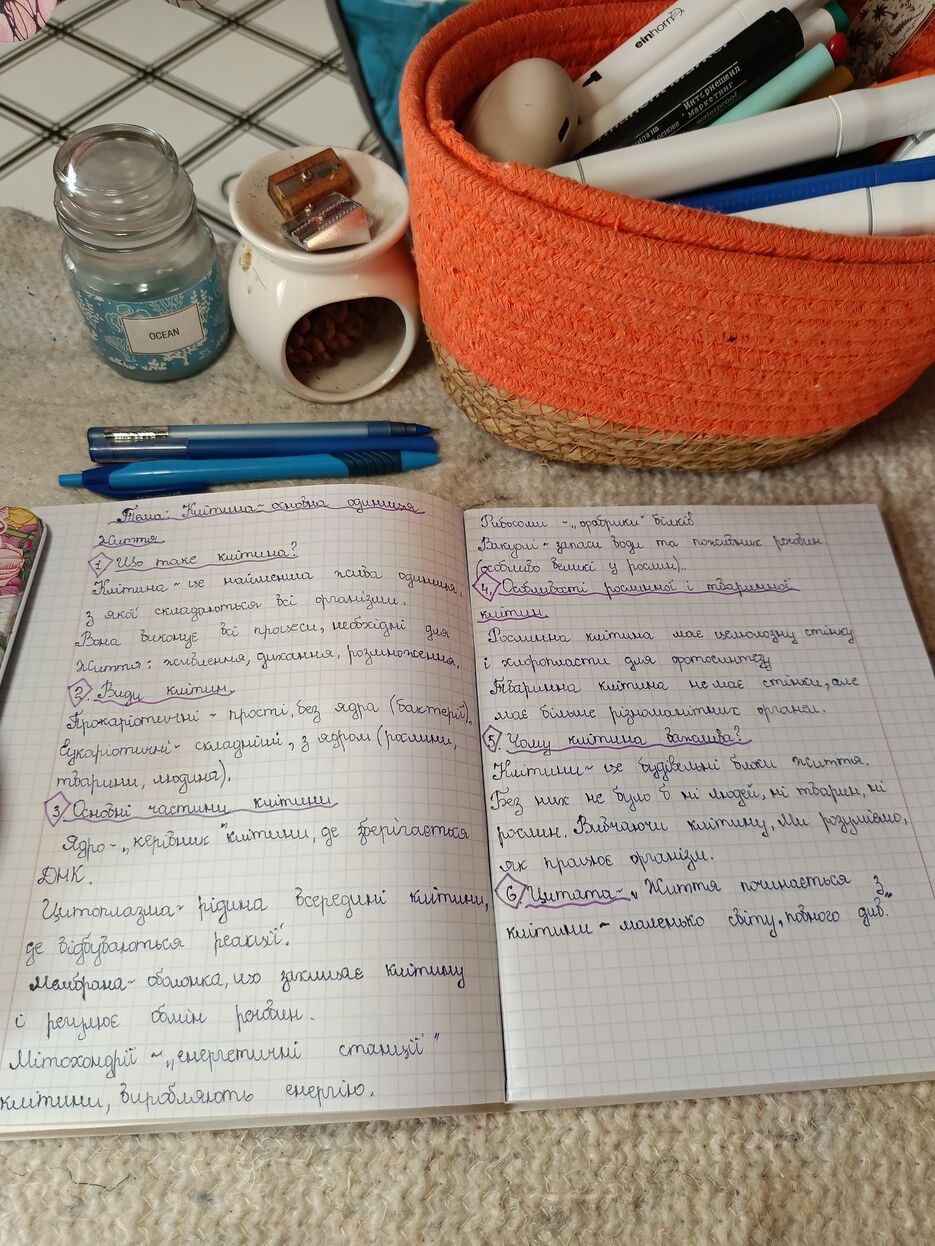 einhorn
Интернешенл
Маркетинг
основе
waterproof
OCEAN
Тема: Клітина - основна одиниця
життя
1. Що таке клітина?
Клітина - це найменша жива одиниця,
з якої складаються всі організми.
Вона виконує всі процеси, необхідні для
життя: живлення, дихання, розмноження.
2. Види клітин
Прокаріотичні - прості, без ядра (бактерії).
Еукаріотичні - складніші, з ядром (рослини,
тварини, людина).
3. Основні частини клітини
Ядро - „керівник" клітини, де зберігається
ДНК.
Цитоплазма - рідина всередині клітини,
де відбуваються реакції.
Мембрана - оболонка, що захищає клітину
і регулює обмін речовин.
Мітохондрії - „енергетичні станції"
клітини, виробляють енергію.
Рибосоми - „фабрики" білків
Вакуолі - запаси води та поживних речовин
(особливо великі у рослин)..
4. Особливості рослинної і тваринної
клітин
Рослинна клітина має целюлозну стінку
і хлоропласти для фотосинтезу
Тваринна клітина не має стінки, але
має більше різноманітних органел.
5. Чому клітина важлива?
Клітини - це будівельні блоки життя.
Без них не було б ні людей, ні тварин, ні
рослин. Вивчаючи клітину, ми розуміємо,
як працює організм.
6. Цитата - „Життя починається з
клітини - маленько світу, повного див."